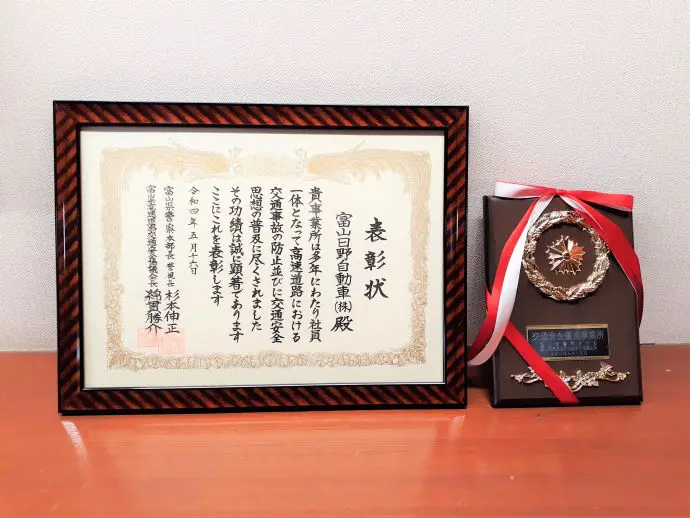 表彰状
富山日野自動車(株) 殿
貴事業所は多年にわたり社員
一体となって高速道路における
交通事故の防止並びに交通安全
思想の普及に尽くされました
その功績は誠に顕著であります
ここにこれを表彰します
令和四年五月十六日
富山県警察本部長 警視長 杉本伸正
富山県高速道路交通安全協議会長 綿貫勝介
交通安全優良事業所